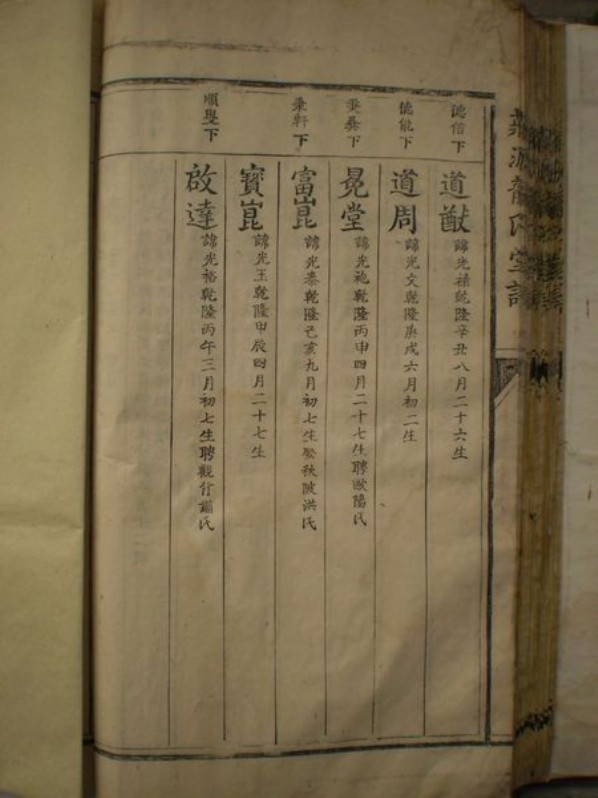 德信下
道猷 諱光祿乾隆辛丑八月二十六生
德能下
道周 諱光文乾隆庚戌六月初二生
秉彝下
冕堂 諱光袍乾隆丙申四月二十七生聘歐陽氏
秉軒下
富崑 諱光泰乾隆己亥九月初七生娶秋陂洪氏
寶崑 諱光玉乾隆甲辰四月二十七生
順星下
啟達 諱光裕乾隆丙午三月初七生聘觀行蕭氏